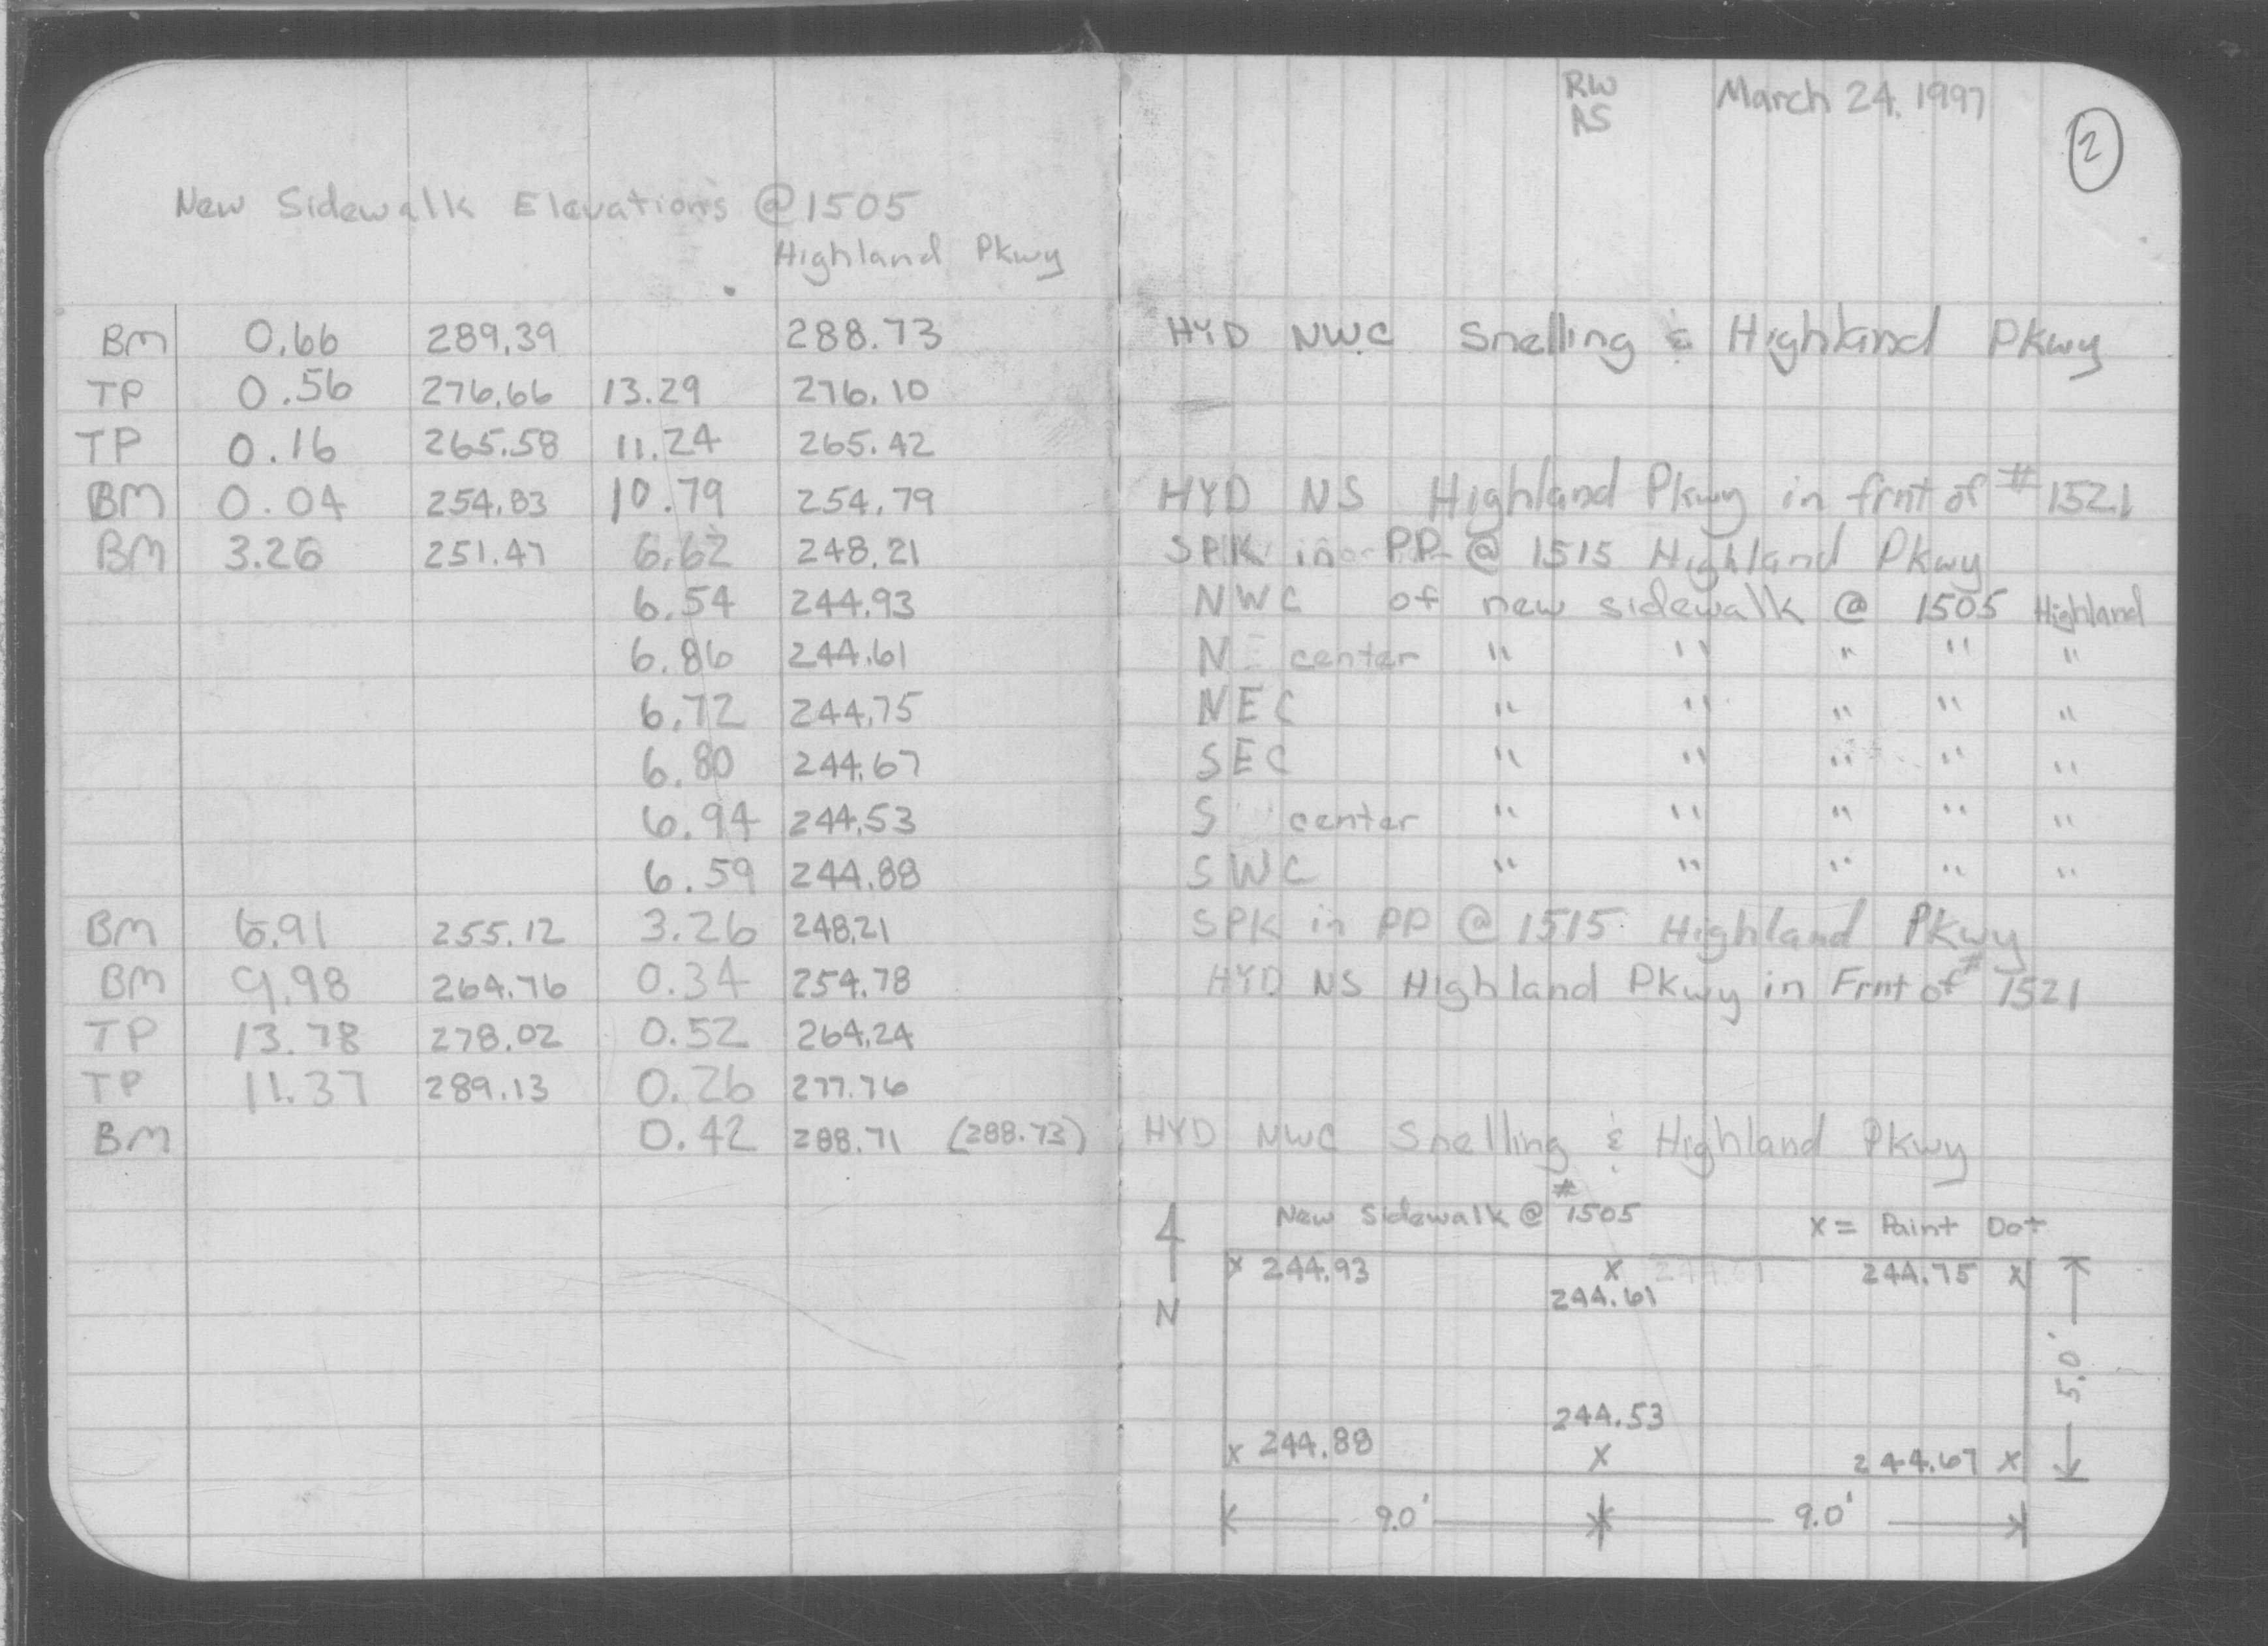 RW March 24, 1997
AS
2
New Sidewalk Elevations @ 1505
Highland Pkwy
BM 0.66 289.39 288.73 HYD NWC Snelling & Highland Pkwy
TP 0.56 276.66 13.29 276.10
TP 0.16 265.58 11.24 265.42
BM 0.04 254.83 10.79 254.79 HYD NS Highland Pkwy in frnt of # 1521
BM 3.26 251.47 6.62 248.21 SPK in PP @ 1515 Highland Pkwy
6.54 244.93 NWC of new sidewalk @ 1505 Highland
6.86 244.61 N center " " " " "
6.72 244.75 NEC " " " " "
6.80 244.67 SEC " " " " "
6.94 244.53 S center " " " " "
6.59 244.88 SWC " " " " "
BM 6.91 255.12 3.26 248.21 SPK in PP @ 1515 Highland Pkwy
BM 9.98 264.76 0.34 254.78 HYD NS Highland Pkwy in Frnt of # 1521
TP 13.78 278.02 0.52 264.24
TP 11.37 289.13 0.26 277.76
BM 0.42 288.71 (288.73) HYD NWC Snelling & Highland Pkwy
New Sidewalk @ # 1505 x = Paint Dot
x 244.93 x 244.75 x
244.61
N
5.0'
244.53
x 244.88 x 244.67 x
9.0' 9.0'